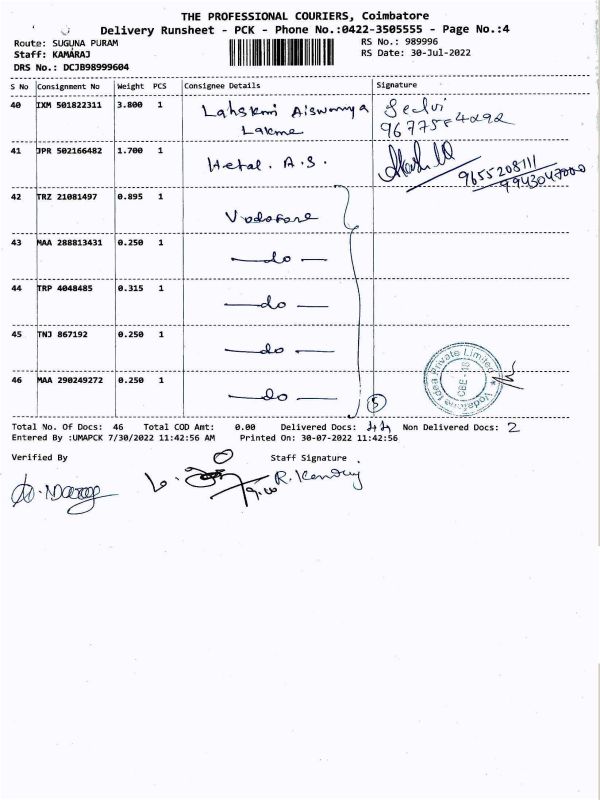 THE PROFESSIONAL COURIERS, Coimbatore
Delivery Runsheet - PCK - Phone No.:0422-3505555 - Page No.:4
Route: SUGUNA PURAM
RS No.: 989996
Staff: KAMARAJ
RS Date: 30-Jul-2022
DRS No.: DCJB98999604
S No Consignment No Weight PCS Consignee Details Signature
40 IXM 501822311 3.800 1 Lahskmi Aiswarya Selvi
Lakme
41 JPR 502166482 1.700 1 Hetal. A.S. 9655208111
9943047000
42 TRZ 21081497 0.895 1 Vodafone
43 MAA 288813431 0.250 1 —do—
44 TRP 4048485 0.315 1 —do—
45 TNJ 867192 0.250 1 —do—
46 MAA 290249272 0.250 1 —do— 5
Vodafone Idea Private Limited * CBE-18
Total No. Of Docs: 46 Total COD Amt: 0.00 Delivered Docs: 44 Non Delivered Docs: 2
Entered By :UMAPCK 7/30/2022 11:42:56 AM Printed On: 30-07-2022 11:42:56
Verified By Staff Signature